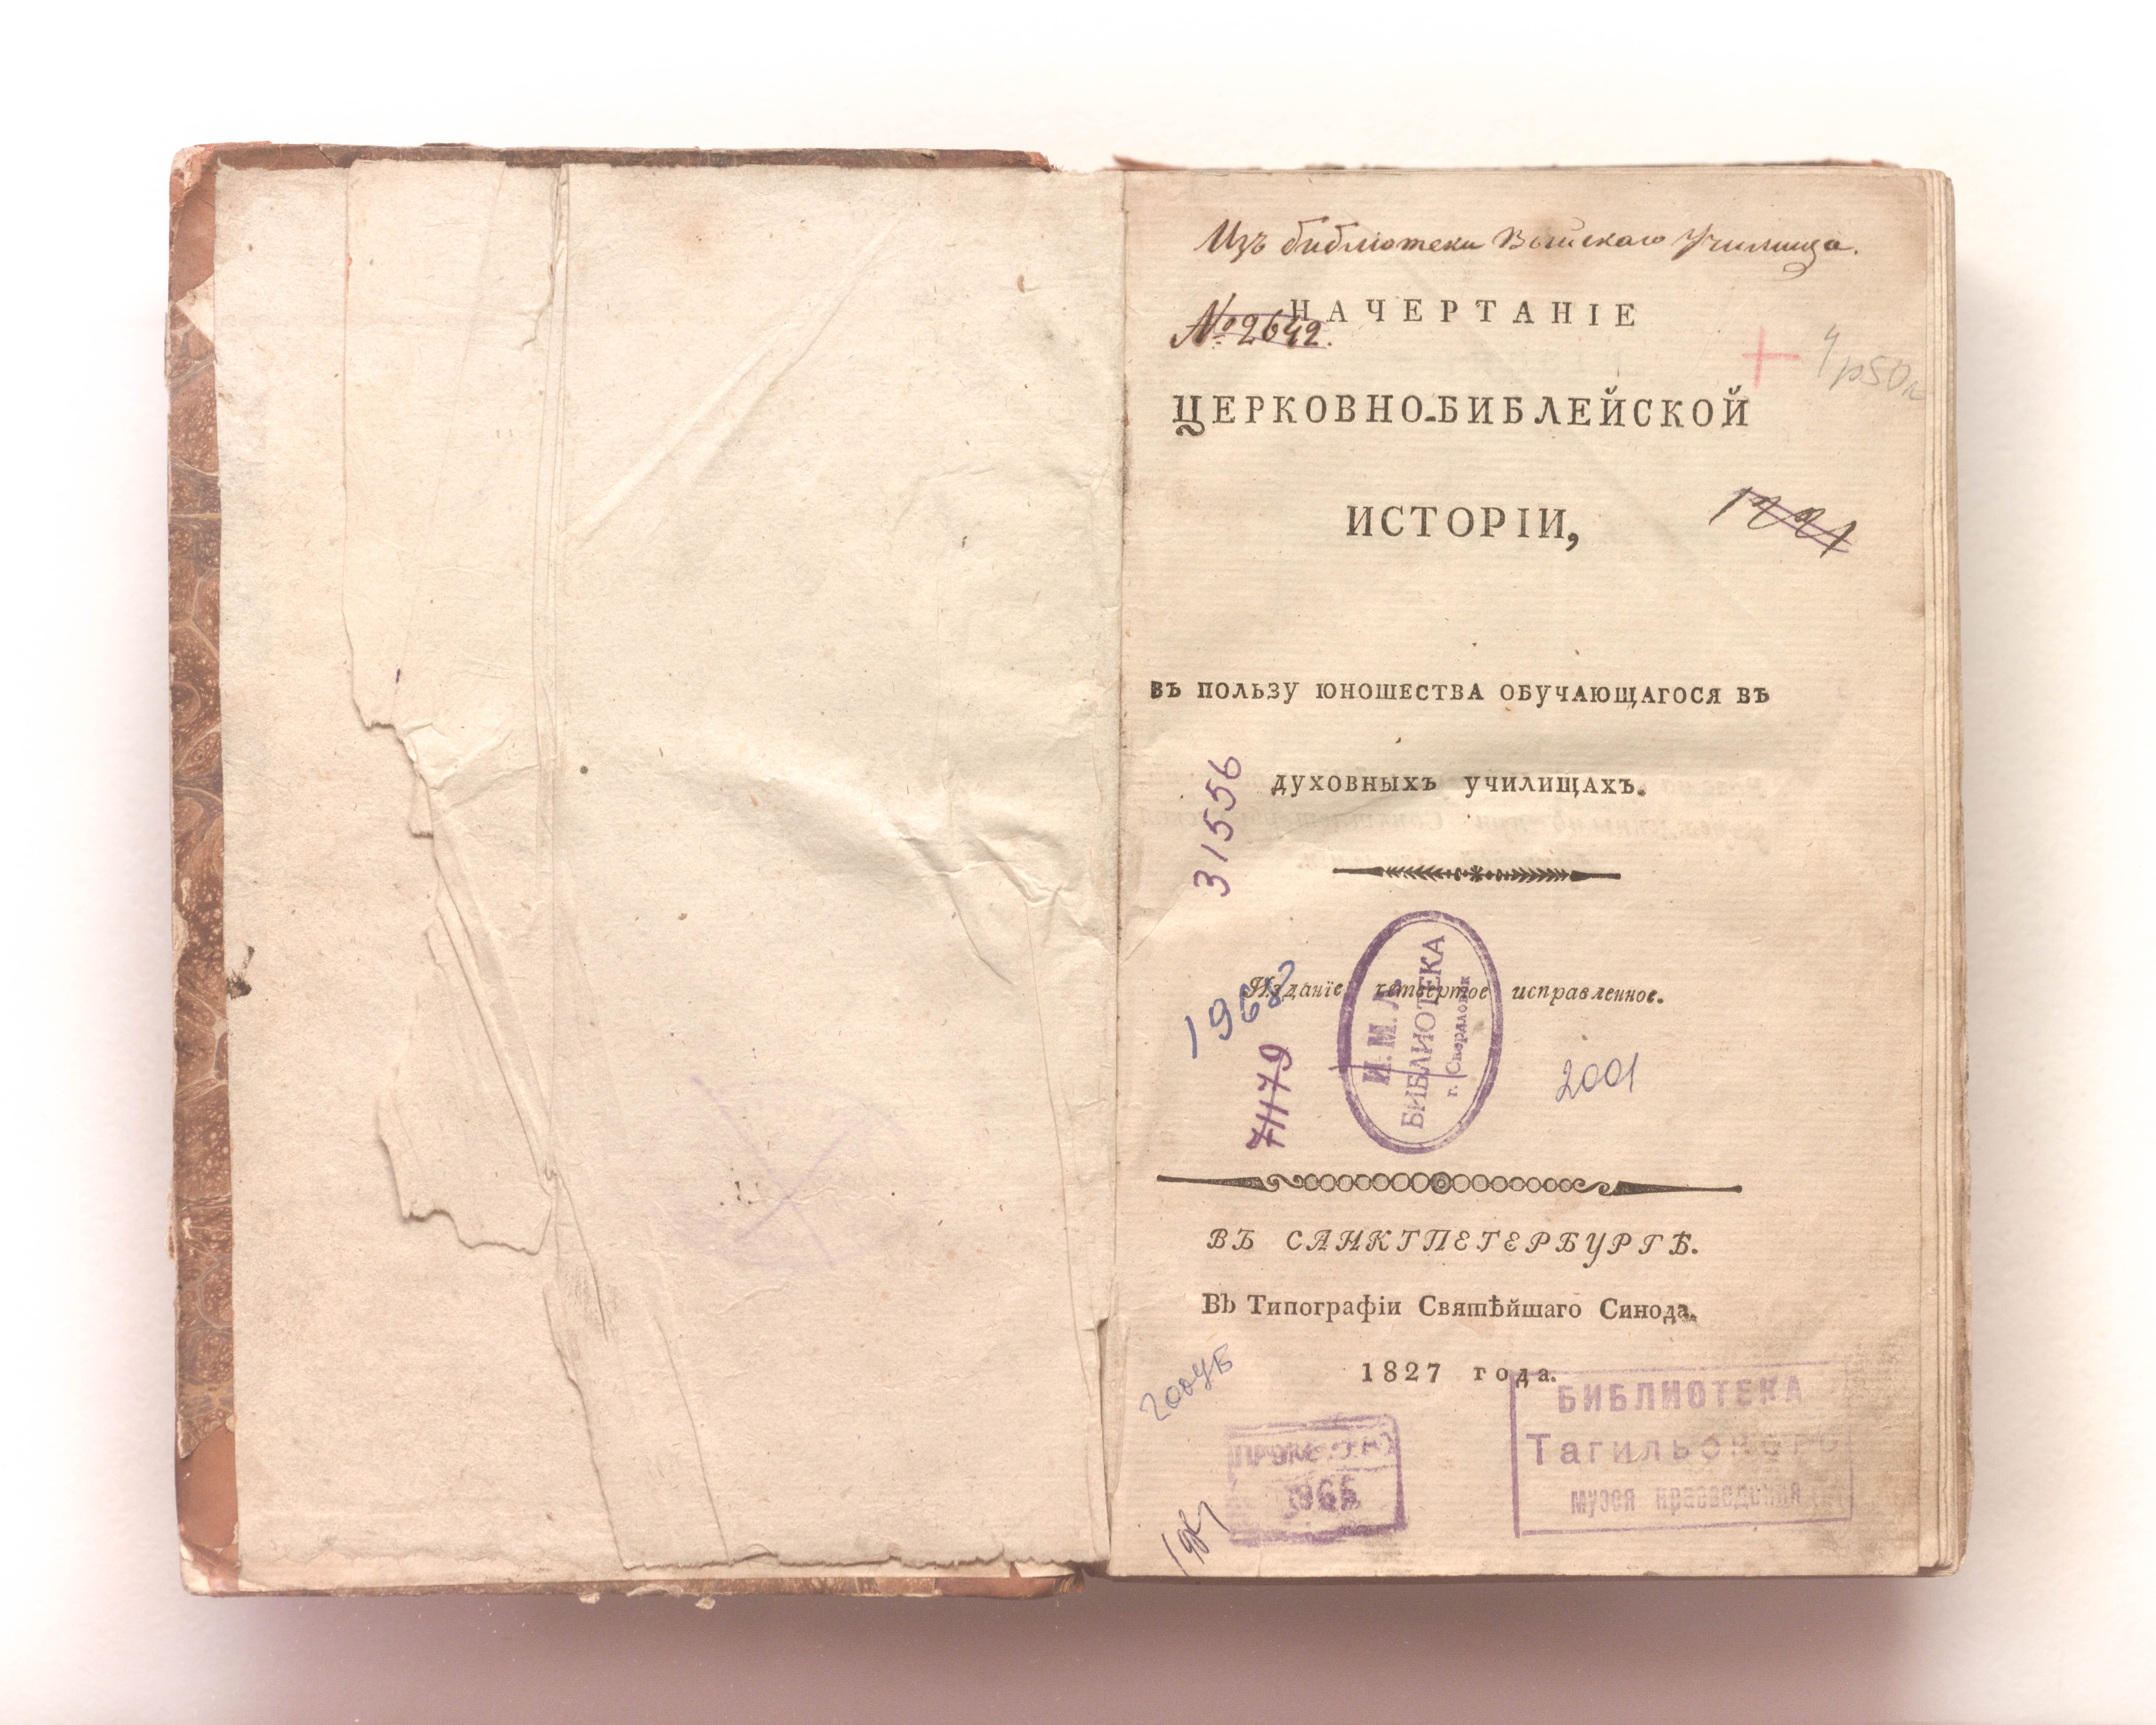 Изъ библіотеки Выйскаго Училища.
НАЧЕРТАНІЕ
№ 2642.
4р50к
ЦЕРКОВНО-БИБЛЕЙСКОЙ
ИСТОРІИ,
ВЪ ПОЛЬЗУ ЮНОШЕСТВА ОБУЧАЮЩАГОСЯ ВЪ
ДУХОВНЫХЪ УЧИЛИЩАХЪ.
31556
Изданіе четвертое исправленное.
1968
И. М. Л.
БИБЛИОТЕКА
г. Свердловск
71179
2001
ВЪ САНКТПЕТЕРБУРГѢ.
Въ Типографіи Святѣйшаго Синода.
1827 года.
БИБЛИОТЕКА
Тагильского
музея краеведения